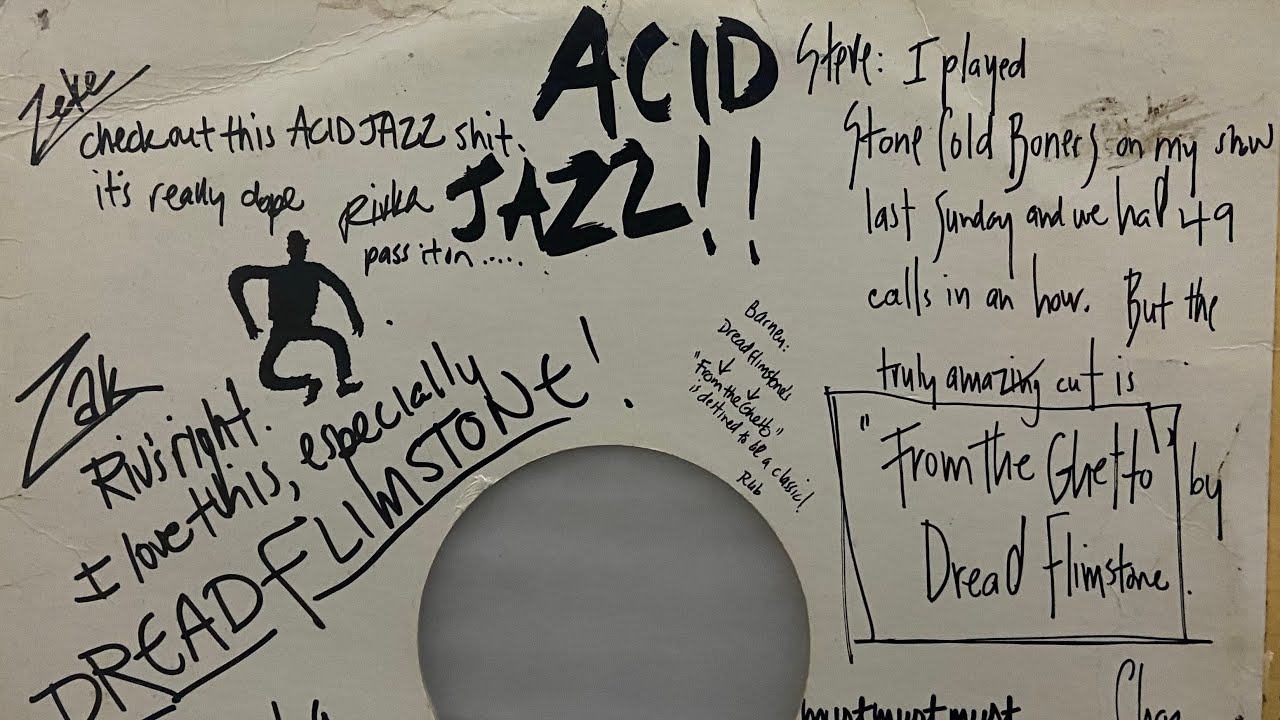 ACID
JAZZ!!
Zeke
check out this ACID JAZZ shit.
it's really dope
Rivka
pass it on .....
Zak
Riv's right.
I love this, especially
DREAD FLIMSTONE!
Barney:
Dread Flimstone's
"From the Ghetto"
is destined to be a classic!
Rub
Steve: I played
Stone Cold Boners on my show
last Sunday and we had 49
calls in an hour. But the
truly amazing cut is
"From the Ghetto" by
Dread Flimstone.